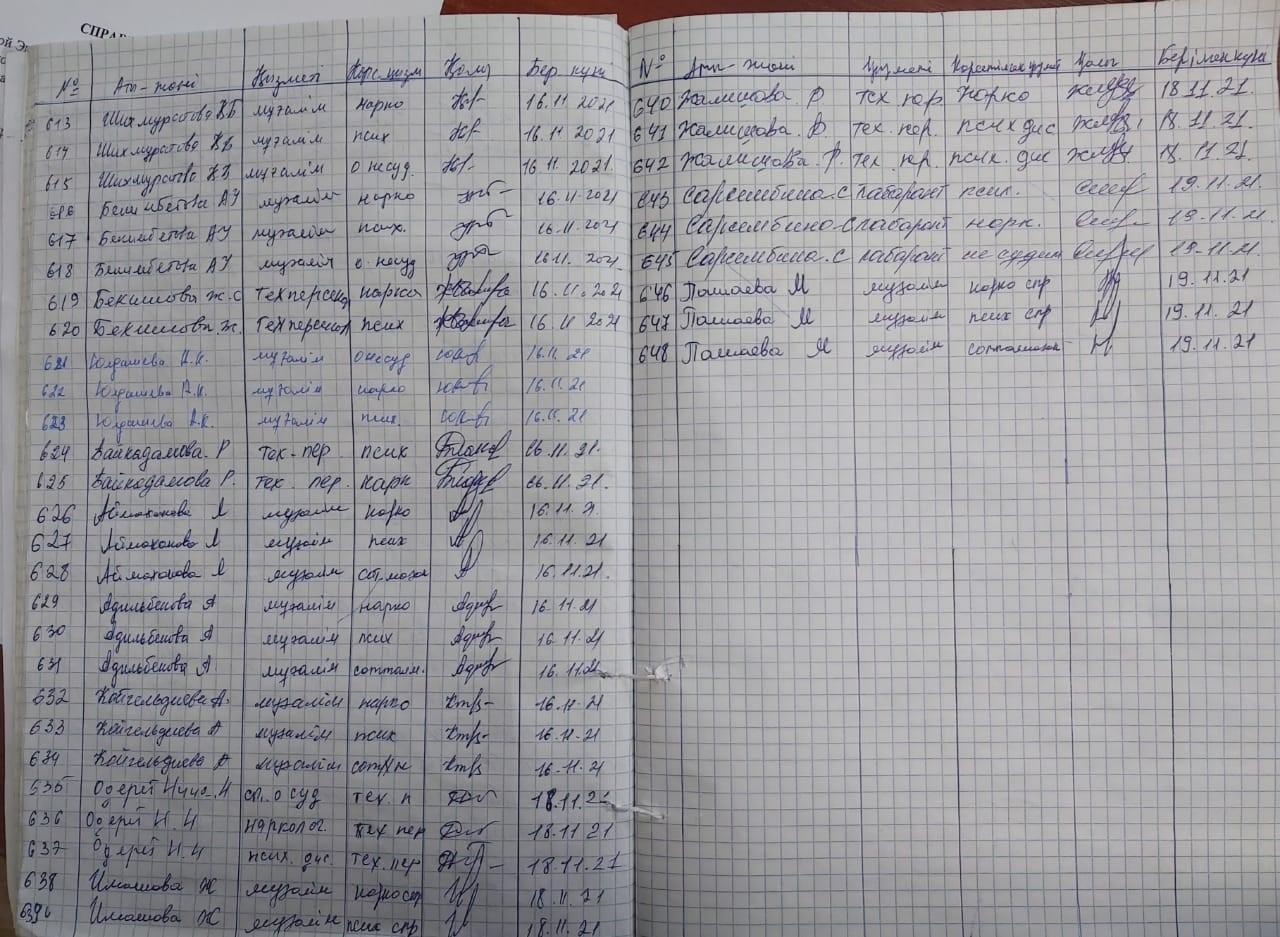 СПРАВ
№ Аты-жөні Қызметі Қолы Бер. күні
613 Шихмуратова КБ мұғалім нарко 16.11 2021
614 Шихмуратова КБ мұғалім псих 16.11 2021
615 Шихмуратова КБ мұғалім о несуд. 16.11 2021
616 Бекимбетова АУ мұғалім нарко 16.11.2021
617 Бекимбетова АУ мұғалім псих. 16.11.2021
618 Бекимбетова АУ мұғалім о. несуд 16.11.2021
619 Бекишова Ж.С техперсонал нарко 16.11.2021
620 Бекишова Ж. техперсонал псих 16.11 2021
621 Юлдашева А.К. мұғалім о несуд 16.11 21
622 Юлдашева А.К. мұғалім нарко 16.11.21
623 Юлдашева А.К. мұғалім псих. 16.11.21
624 Байкадамова. Р тех-пер. псих 16.11.21.
625 Байкадамова Р. тех. пер. нарк 16.11.21.
626 Аймаханова А мұғалім нарко 16.11.21
627 Аймаханова А мұғалім псих 16.11.21
628 Аймаханова А мұғалім 16.11.21.
629 Адильбекова А мұғалім нарко 16.11.21
630 Адильбекова А мұғалім псих 16.11.21
631 Адильбекова А мұғалім соттолм. 16.11.21
632 Койгельдиева А. мұғалім нарко 16.11.21
633 Койгельдиева А мұғалім псих 16.11.21
634 Койгельдиева А мұғалім 16.11.21
635 о суд тех. п 18.11.21
636 Н.Ч нарколог. тех пер 18.11 21
637 Н.Ч псих. дис. тех.пер 18.11.21
638 Имашова Ж мұғалім нарко спр 18.11.21
639 Имашова Ж мұғалім псих спр 18.11.21
№ Аты-жөні Қызметі Қолы Берілген күні
640 Жалишова. Р тех пер. Нарко 18.11.21.
641 Жалишова. Р тех. пер. псих дис 18.11.21.
642 Жалишова. Р. тех. пер. псих. дис 18.11.21.
643 Сарсембина. С лаборант псих. 19.11.21.
644 Сарсембина. С лаборант норк. 19.11.21.
645 Сарсембина. С лаборант не судим 19.11.21.
646 Пашаева М мұғалім нарко спр 19.11.21
647 Пашаева М мұғалім псих спр 19.11.21
648 Пашаева М мұғалім 19.11.21